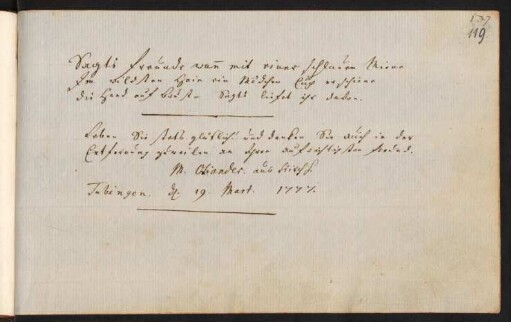 137
119
Sagts Freunde wann mit einer schlauen Mine
Im wildsten Hain ein Mädchen Euch erschiene
die Hand auf Brust Sagts liefet ihr davon.
Leben Sie stets glüklich und denken Sie auch in der
Entfernung zuweilen an Ihren aufrichtigsten Freund.
M. Osiander. aus
Tubingen. d. 19 Mart. 1777.